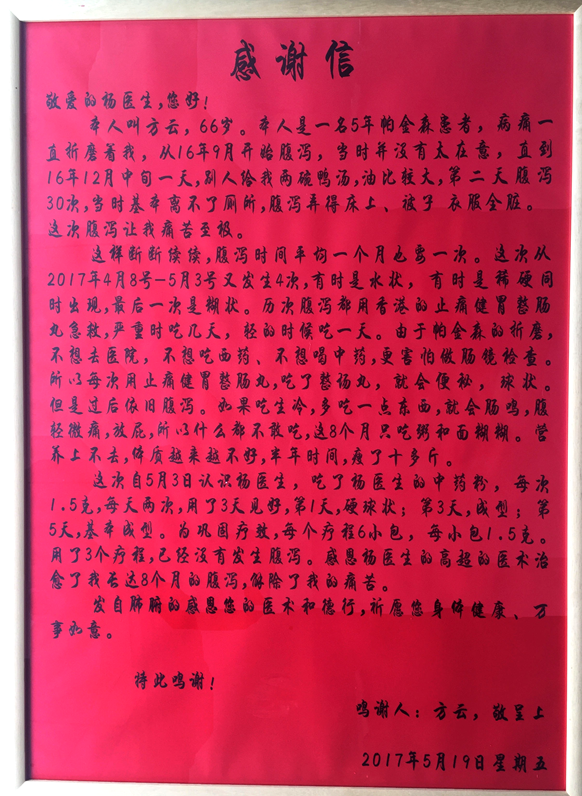 感谢信
敬爱的杨医生,您好!
本人叫方云,66岁。本人是一名5年帕金森患者,病痛一
直折磨着我,从16年9月开始腹泻,当时并没有太在意,直到
16年12月中旬一天,别人给我两碗鸭汤,油比较大,第二天腹泻
30次,当时基本离不了厕所,腹泻弄得床上、被子 衣服全脏。
这次腹泻让我痛苦至极。
这样断断续续,腹泻时间平均一个月也要一次。这次从
2017年4月8号-5月3号又发生4次,有时是水状,有时是稀硬同
时出现,最后一次是糊状。历次腹泻都用香港的止痛健胃整肠
丸急救,严重时吃几天,轻的时候吃一天。由于帕金森的折磨,
不想去医院,不想吃西药、不想喝中药,更害怕做肠镜检查。
所以每次用止痛健胃整肠丸,吃了整汤丸,就会便秘,球状。
但是过后依旧腹泻。如果吃生冷,多吃一点东西,就会肠鸣,腹
轻微痛,放屁,所以什么都不敢吃,这8个月只吃粥和面糊糊。营
养上不去,体质越来越不好,半年时间,瘦了十多斤。
这次自5月3日认识杨医生,吃了杨医生的中药粉,每次
1.5克,每天两次,用了3天见好,第1天,硬球状;第3天,成型;第
5天,基本成型。为巩固疗效,每个疗程6小包,每小包1.5克。
用了3个疗程,已经没有发生腹泻。感恩杨医生的高超的医术治
愈了我长达8个月的腹泻,解除了我的痛苦。
发自肺腑的感恩您的医术和德行,祈愿您身体健康、万
事如意。
特此鸣谢!
鸣谢人:方云,敬呈上
2017年5月19日星期五